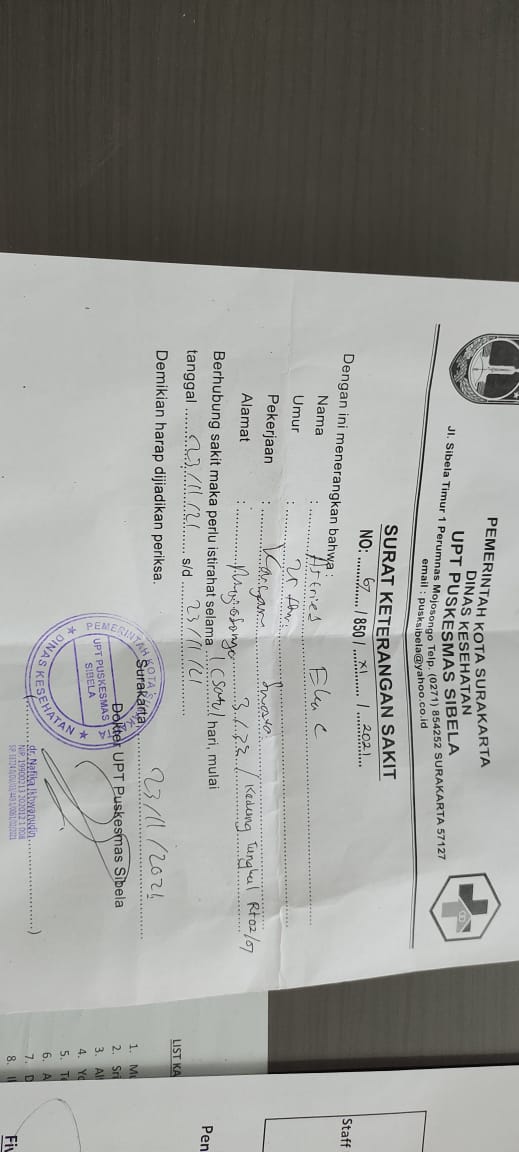 PEMERINTAH KOTA SURAKARTA
DINAS KESEHATAN
UPT PUSKESMAS SIBELA
Jl. Sibela Timur 1 Perumnas Mojosongo Telp. (0271) 854252 SURAKARTA 57127
email : pusksibela@yahoo.co.id
SURAT KETERANGAN SAKIT
NO: 67 / 850 / XI / 2021
Dengan ini menerangkan bahwa :
Nama : Astries Eka C
Umur :
Pekerjaan : Karyawan Swasta
Alamat : 3/23 / Kedung Tungkul Rt 02/07
Berhubung sakit maka perlu istirahat selama 1 (satu) hari, mulai
tanggal 23/11/21 s/d 23/11/21
Demikian harap dijiadikan periksa.
Surakarta, 23/11/2021
Dokter UPT Puskesmas Sibela
PEMERINTAH KOTA
UPT PUSKESMAS
SIBELA
DINAS KESEHATAN
dr. Nafika Istwanudin
LIST KA
1. Mu
2. Sri
3.
4.
5. Te
6. A
7. D
8.
Pen
Staff
Fiv